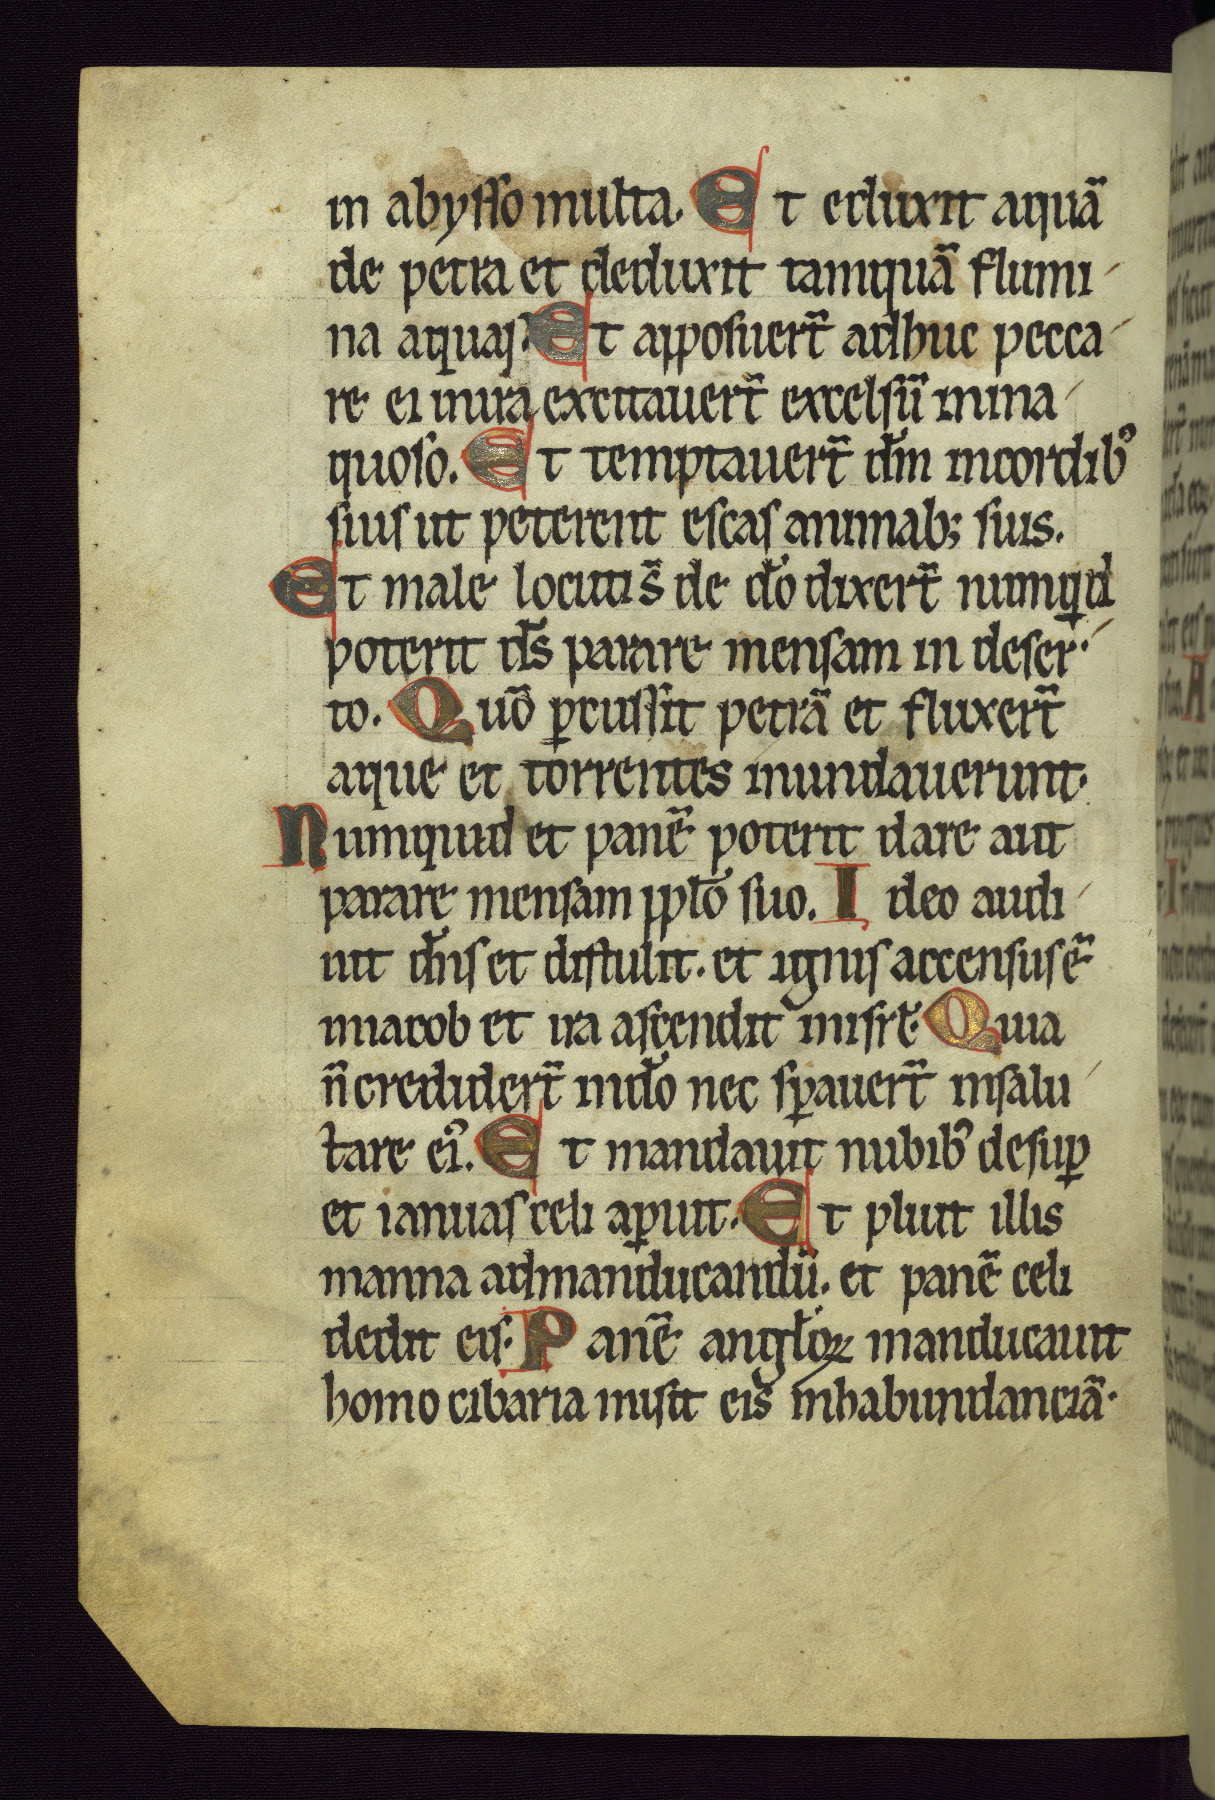 in abysso multa. Et eduxit aquā
de petra et deduxit tamquā flumi
na aquas. Et apposuert̄ adhuc pecca
re ei in ira excitauert̄ excelsū in ina
quoso. Et temptauert̄ dn̄m in cordib⁹
suis ut peterent escas animab; suis.
Et male locuti s̄ de do̅ dixert̄ numqͥd
poterit ds̄ parare mensam in deser
to. Quō ꝑcussit petrā et fluxert̄
aque et torrentes inundauerunt.
Numquid et panē poterit dare aut
parare mensam pplo̅ suo. Ideo audi
uit dn̅s et distulit. et ignis accensus ē
in iacob et ira ascendit in isrl̅. Quia
n̄ credidert̄ in do̅ nec sꝑauert̄ in salu
tare ei⁹. Et mandauit nubib⁹ desuꝑ
et ianuas celi aꝑuit. Et pluit illis
manna ad manducandū. et panē celi
dedit eis. Panē anglo̅ꝝ manducauit
homo cibaria misit eis in habundanciā.